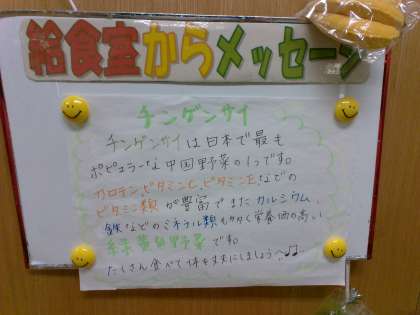 給食室からメッセージ
チンゲンサイ
チンゲンサイは日本で最も
ポピュラーな中国野菜の1つです。
カロテン、ビタミンC、ビタミンEなどの
ビタミン類が豊富でまたカルシウム、
鉄などのミネラル類も多く栄養価の高い
緑黄色野菜です。
たくさん食べて体を丈夫にしましょう♪♫